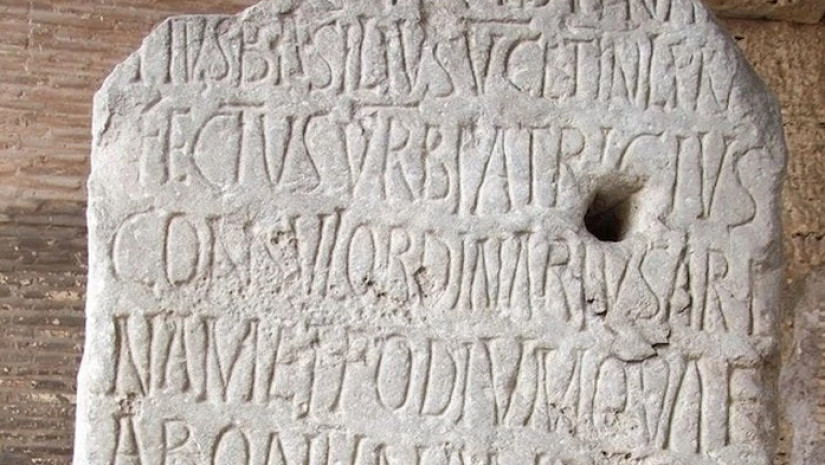 TIVS BASILIVS VC ET INL PR
FECTVS VRBI PATRICIVS
CONSVL ORDINARIVS ARE
NAM ET PODIVM QVAE